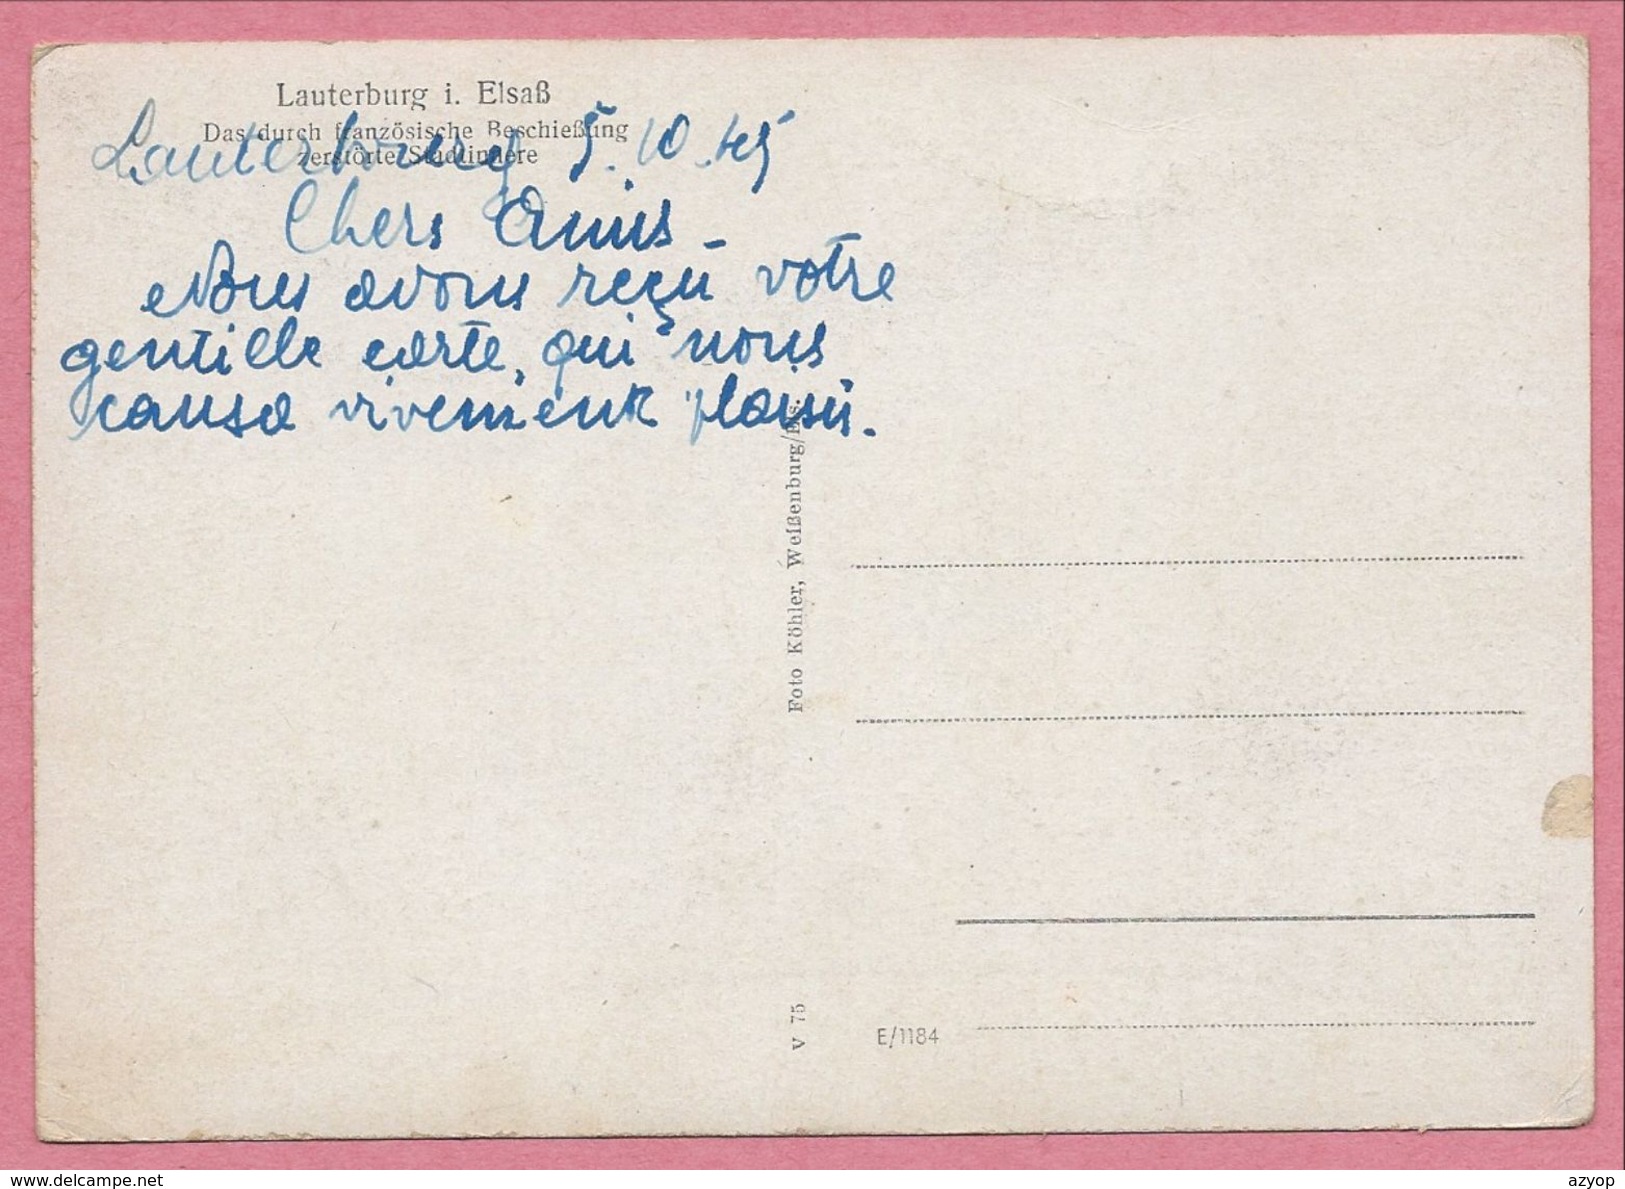 Lauterburg i. Elsaß
Das durch französische Beschießung
zerstörte Stadtinnere
Lauterbourg 5.10.45
Chers Amis -
Nous avons reçu votre
gentille carte, qui nous
causa vivement plaisir.
Foto Köhler, Weißenburg/Els.
V 75
E/1184
www.delcampe.net
azyop